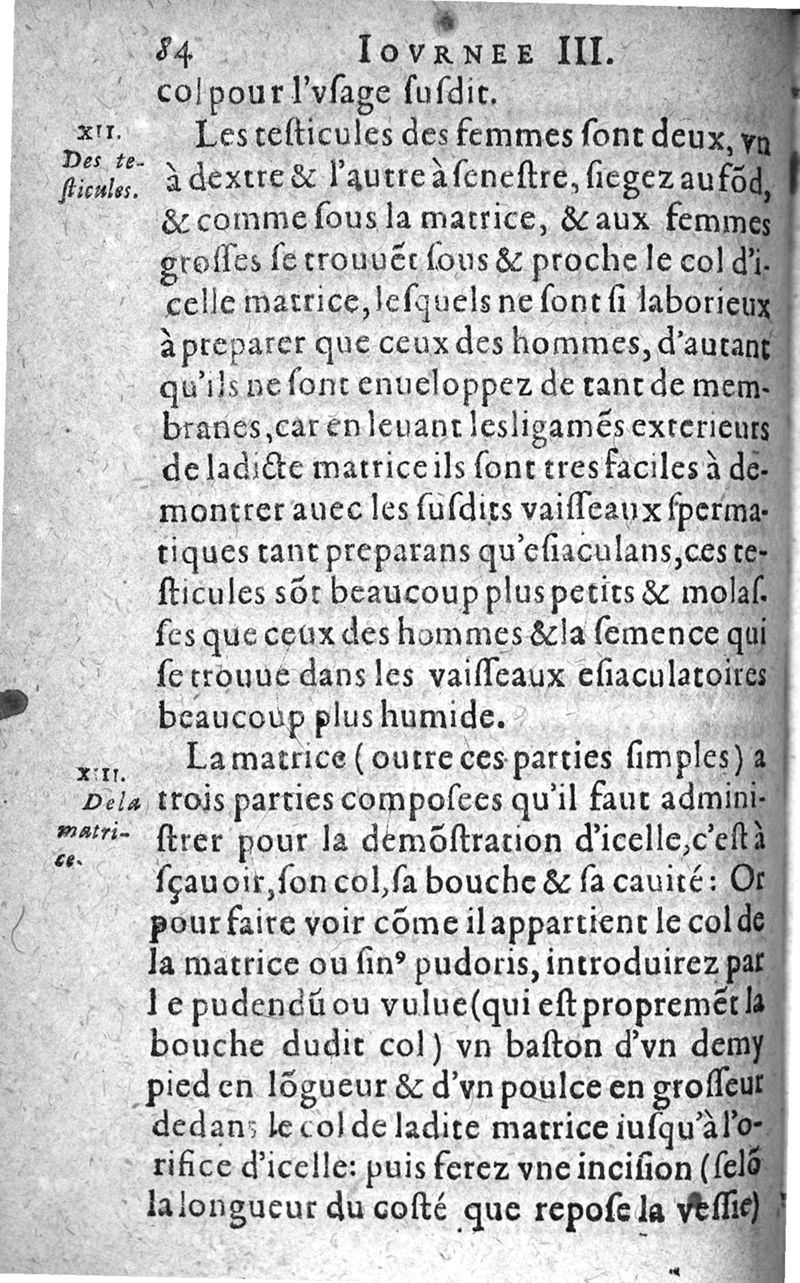 84 IOVRNEE III.
col pour l'vſage ſuſdit.
XII.
Des te-
ſticules.
Les teſticules des femmes ſont deux, vn
à dextre & l'autre à ſeneſtre, ſiegez au fõd,
& comme ſous la matrice, & aux femmes
groſſes ſe trouuẽt ſous & proche le col d'i-
celle matrice, leſquels ne ſont ſi laborieux
à preparer que ceux des hommes, d'autant
qu'ils ne ſont enueloppez de tant de mem-
branes, car en leuant les ligamẽs exterieurs
de ladicte matrice ils ſont tres faciles à de-
montrer auec les ſuſdits vaiſſeaux ſperma-
tiques tant preparans qu'eſiaculans, ces te-
ſticules sõt beaucoup plus petits & molaſ-
ſes que ceux des hommes & la ſemence qui
ſe trouue dans les vaiſſeaux eſiaculatoires
beaucoup plus humide.
XIII.
De la
matri-
ce.
La matrice (outre ces parties ſimples) a
trois parties compoſees qu'il faut admini-
ſtrer pour la demõſtration d'icelle, c'eſt à
ſçauoir, ſon col, ſa bouche & ſa cauité: Or
pour faire voir cõme il appartient le col de
la matrice ou ſinꝰ pudoris, introduirez par
le pudendũ ou vulue (qui eſt propremẽt la
bouche dudit col) vn baſton d'vn demy
pied en lõgueur & d'vn poulce en groſſeur
dedans le col de ladite matrice iuſqu'à l'o-
rifice d'icelle: puis ferez vne inciſion (ſelõ
la longueur du coſté que repoſe la veſſie)